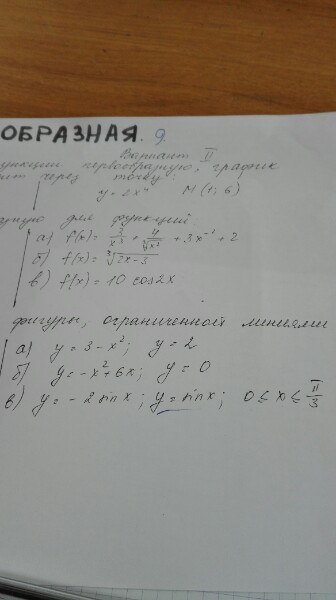 ОБРАЗНАЯ. 9.
Вариант II
функции первообразную, график
ит через точку:
y = 2x⁴ M (1; 6)
разную для функций:
а) f(x) = 3/x³ + 4/∛x² + 3x⁻² + 2
б) f(x) = ∛2x-3
в) f(x) = 10 cos2x
фигуры, ограниченной линиями
а) y = 3 - x²; y = 2
б) y = -x²+6x; y = 0
в) y = -2sinx; y = sinx; 0 ≤ x ≤ π/3